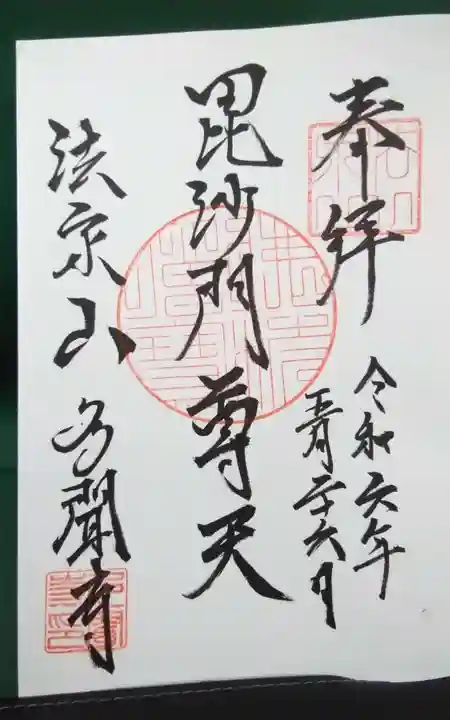 奉拝
令和六年
五月二十六日
毘沙門尊天
法京山 多聞寺